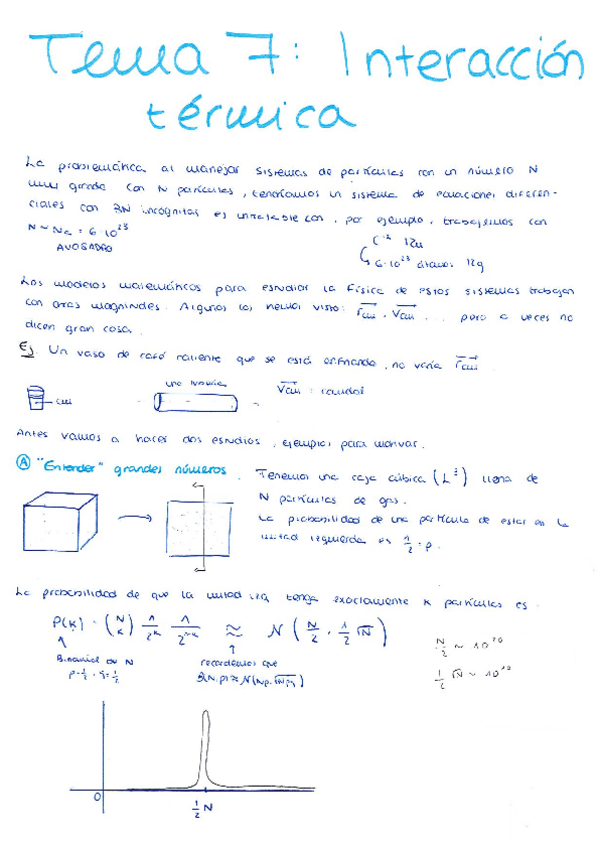 Tema 7: Interacción
térmica
La problemática al manejar sistemas de partículas con un número N
muy grande con N partículas, tendríamos un sistema de ecuaciones diferen-
ciales con 3N incógnitas es intratable con, por ejemplo, trabajemos con
N ~ Na = 6·10²³
AVOGADRO
12u
6·10²³ átomos 12g
Los modelos matemáticos para estudiar la Física de estos sistemas trabajan
con otras magnitudes. Algunos los hemos visto: r⃗cm, v⃗cm, ... pero a veces no
dicen gran cosa.
Ej. Un vaso de café caliente que se está enfriando, no varía r⃗cm
cm
una tubería
v⃗cm : caudal
Antes vamos a hacer dos estudios, ejemplos para motivar.
Ⓐ "Entender" grandes números. Tenemos una caja cúbica (L³) llena de
N partículas de gas.
La probabilidad de una partícula de estar en la
mitad izquierda es 1/2 = p.
La probabilidad de que la mitad izq tenga exactamente k partículas es
P(k) = (N k) 1/2^k 1/2^(N-k) ≈ N(N/2, 1/2 √N)
Binomial con N
p=1/2, q=1/2
recordemos que
B(N,p) ≈ N(Np, √Npq)
1/2 √N ~ 10¹⁰
0
1/2 N